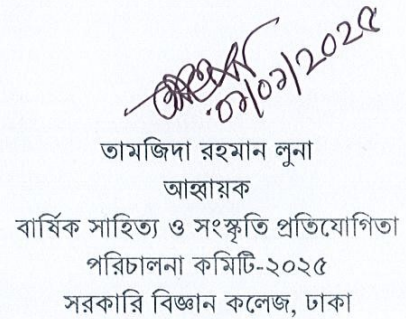 ০১/০১/২০২৫
তামজিদা রহমান লুনা
আহ্বায়ক
বার্ষিক সাহিত্য ও সংস্কৃতি প্রতিযোগিতা
পরিচালনা কমিটি-২০২৫
সরকারি বিজ্ঞান কলেজ, ঢাকা